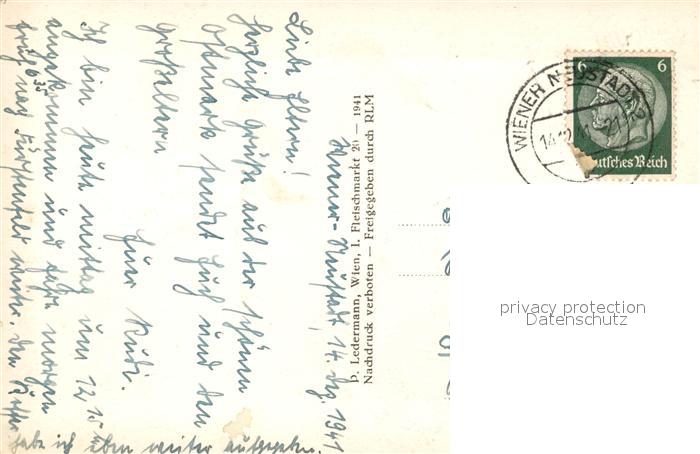 Wiener-Neustadt, 14. Dez. 1941
Liebe Eltern!
Herzliche Grüße aus der schönen
Ostmark sendet Euch und den
Großeltern
Euer Rudi.
Ich bin heute mittag um 12 15
angekommen und fahre morgen
früh 6 35 nach Fürstenfeld weiter. Den
habe ich eben weiter aufgegeben.
P. Ledermann, Wien, I. Fleischmarkt 20 — 1941
Nachdruck verboten — Freigegeben durch RLM
WIENER NEUSTADT 2
14.12.41
6 6
Deutsches Reich
privacy protection
Datenschutz